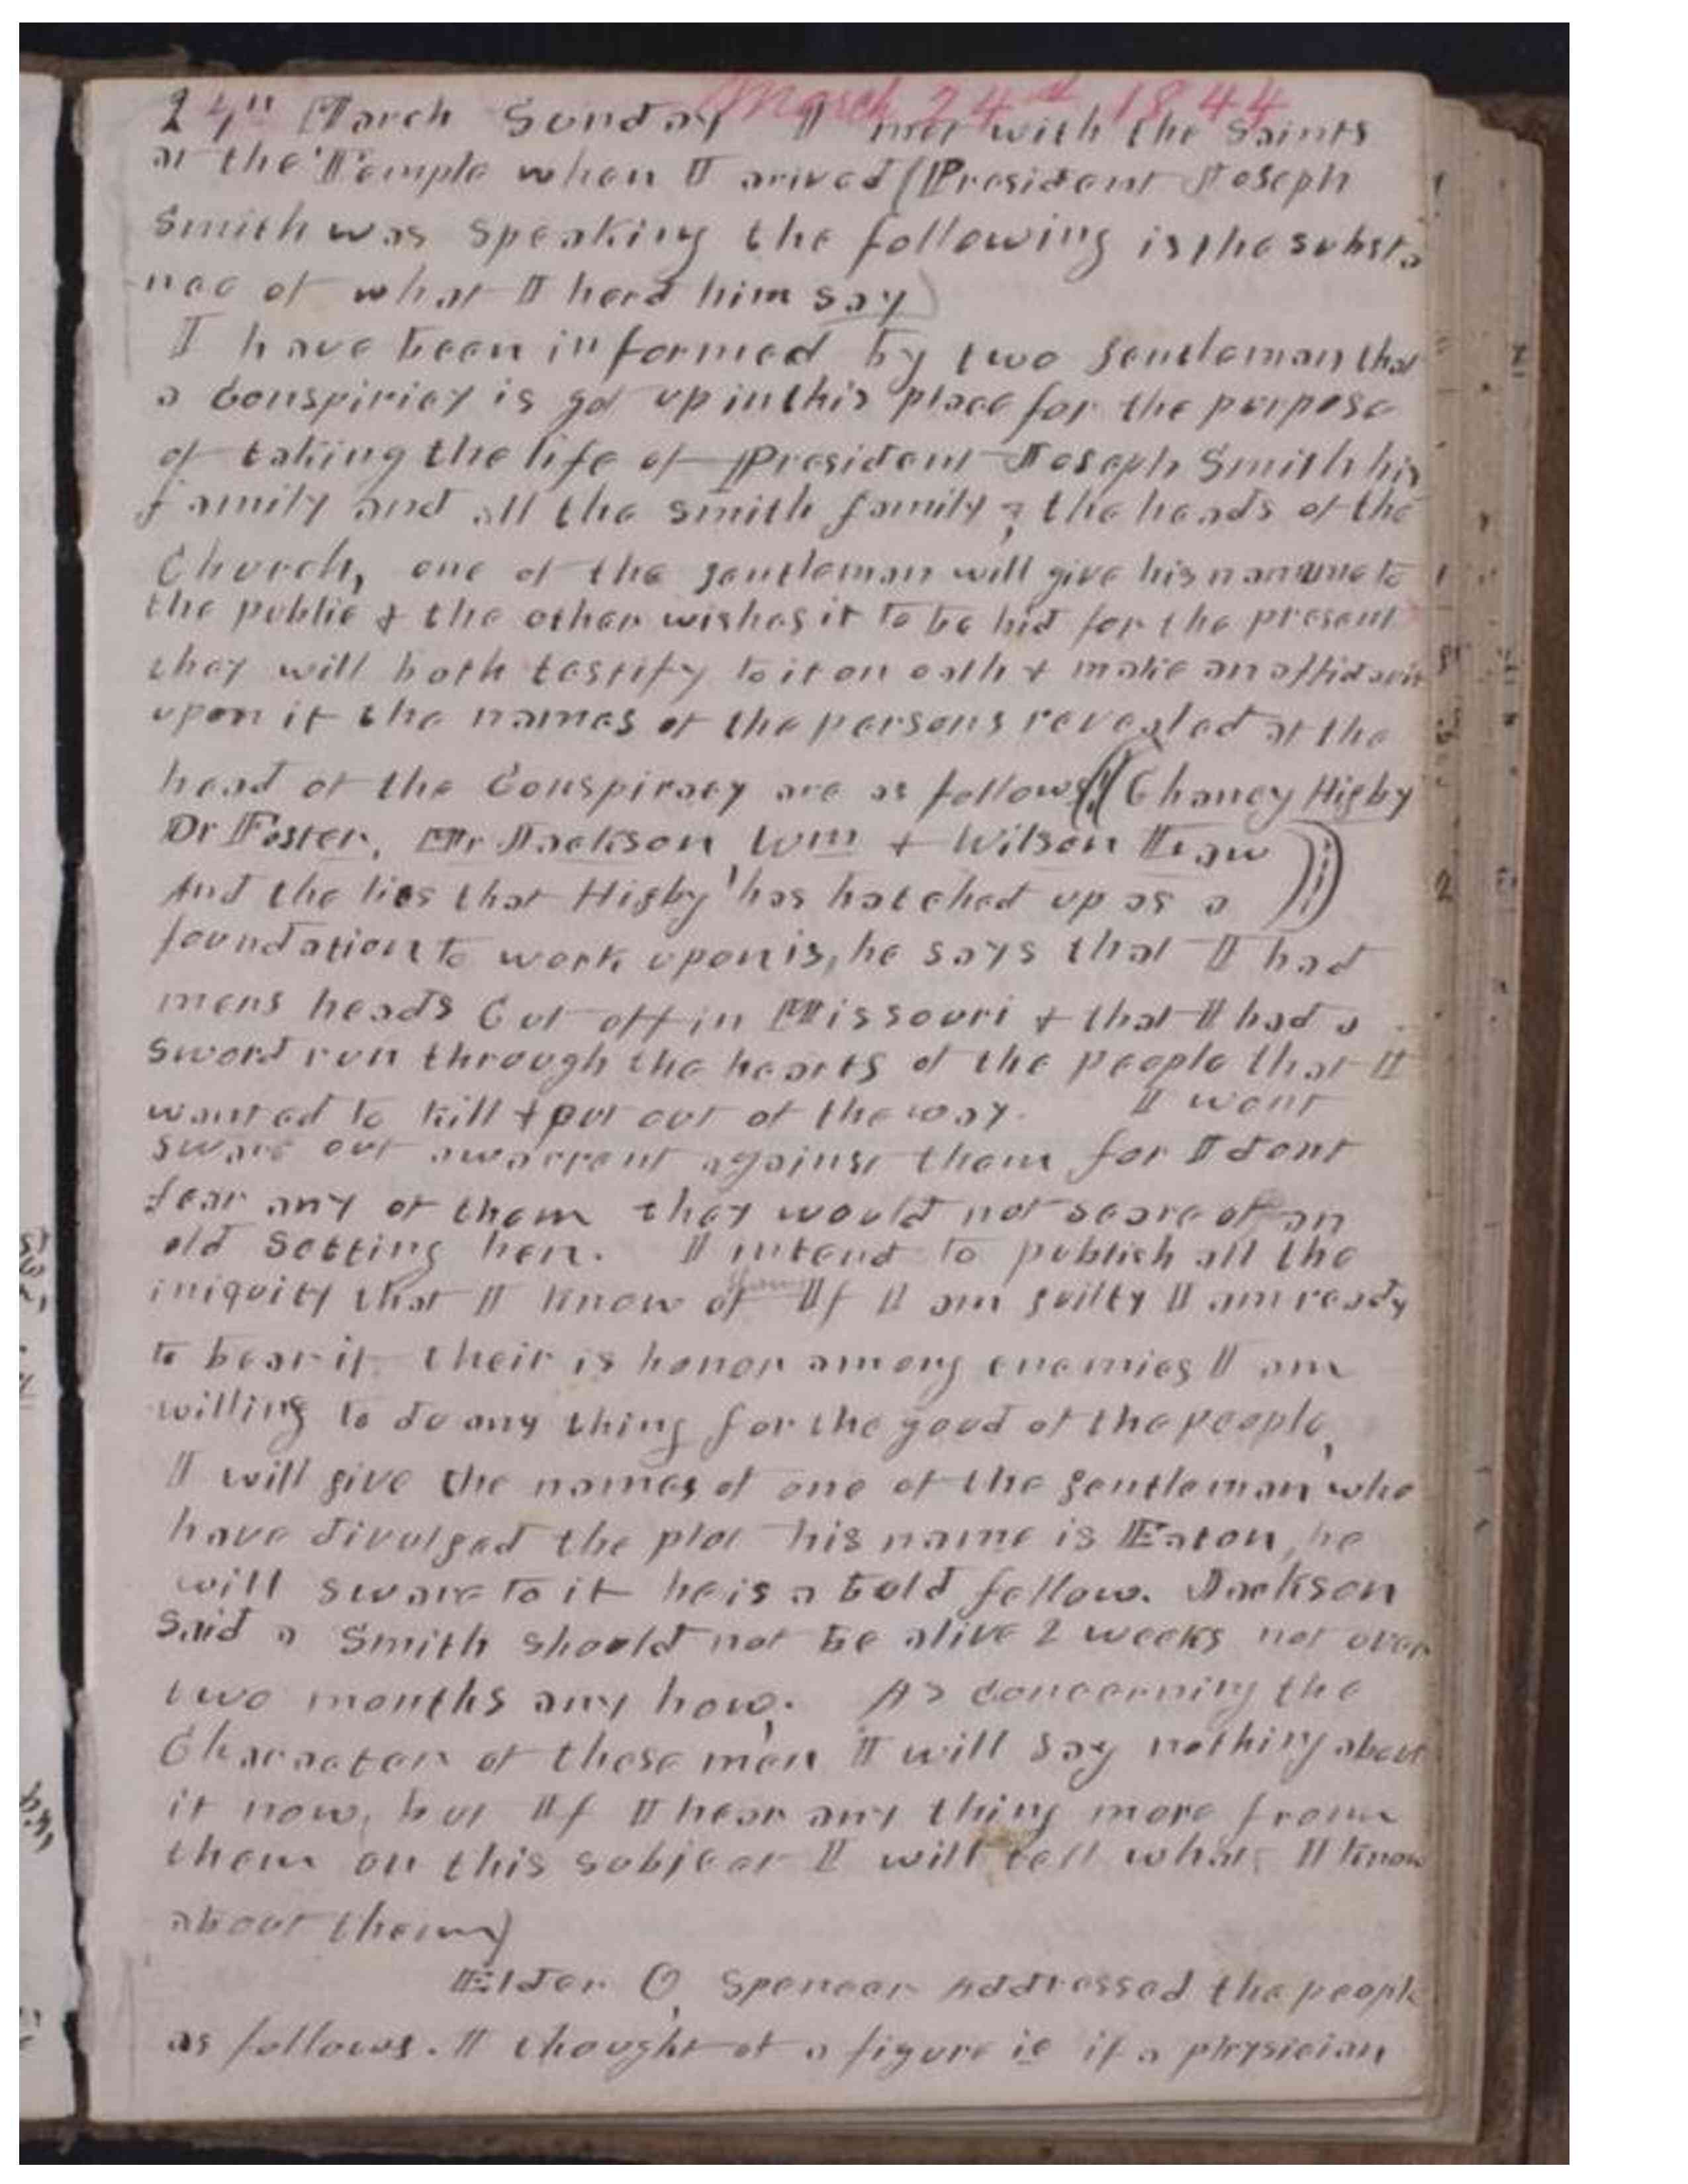 March 24th 1844
24th March Sunday I met with the Saints
at the Temple when I arived (President Joseph
Smith was speaking the following is the substa
nce of what I herd him say)
I have been informed by two gentleman that
a Conspiricy is got up in this place for the purpose
of taking the life of President Joseph Smith his
family and all the Smith family, & the heads of the
Church, one of the gentleman will give his name to
the public & the other wishes it to be hid for the present
they will both testify to it on oath & make an affidavit
upon it the names of the persons revealed at the
head of the Conspiracy are as follows ((Chancy Higby
Dr Foster, Mr Jackson, Wm & Wilson Law))
And the lies that Higby has hatched up as a
foundation to work upon is, he says that I had
mens heads Cut off in Missouri & that I had a
sword run through the hearts of the people that I
wanted to kill & put out of the way. I wont
sware out a warrent against them for I dont
fear any of them they would not scare of an
old Setting hen. I intend to publish all the
iniquity that I know of them If I am guilty I am ready
to bear it their is honor among enemies I am
willing to do any thing for the good of the people,
I will give the names of one of the gentleman who
have divulged the plot his name is Eaton, he
will sware to it he is a bold fellow. Jackson
Said a Smith should not be alive 2 weeks not over
two months any how. As concerning the
Character of these men I will say nothing about
it now, but If I hear any thing more from
them on this subject I will tell what I know
about them)
Elder O, Spencer Addressed the people
as follows. I thought of a figure ie if a physician